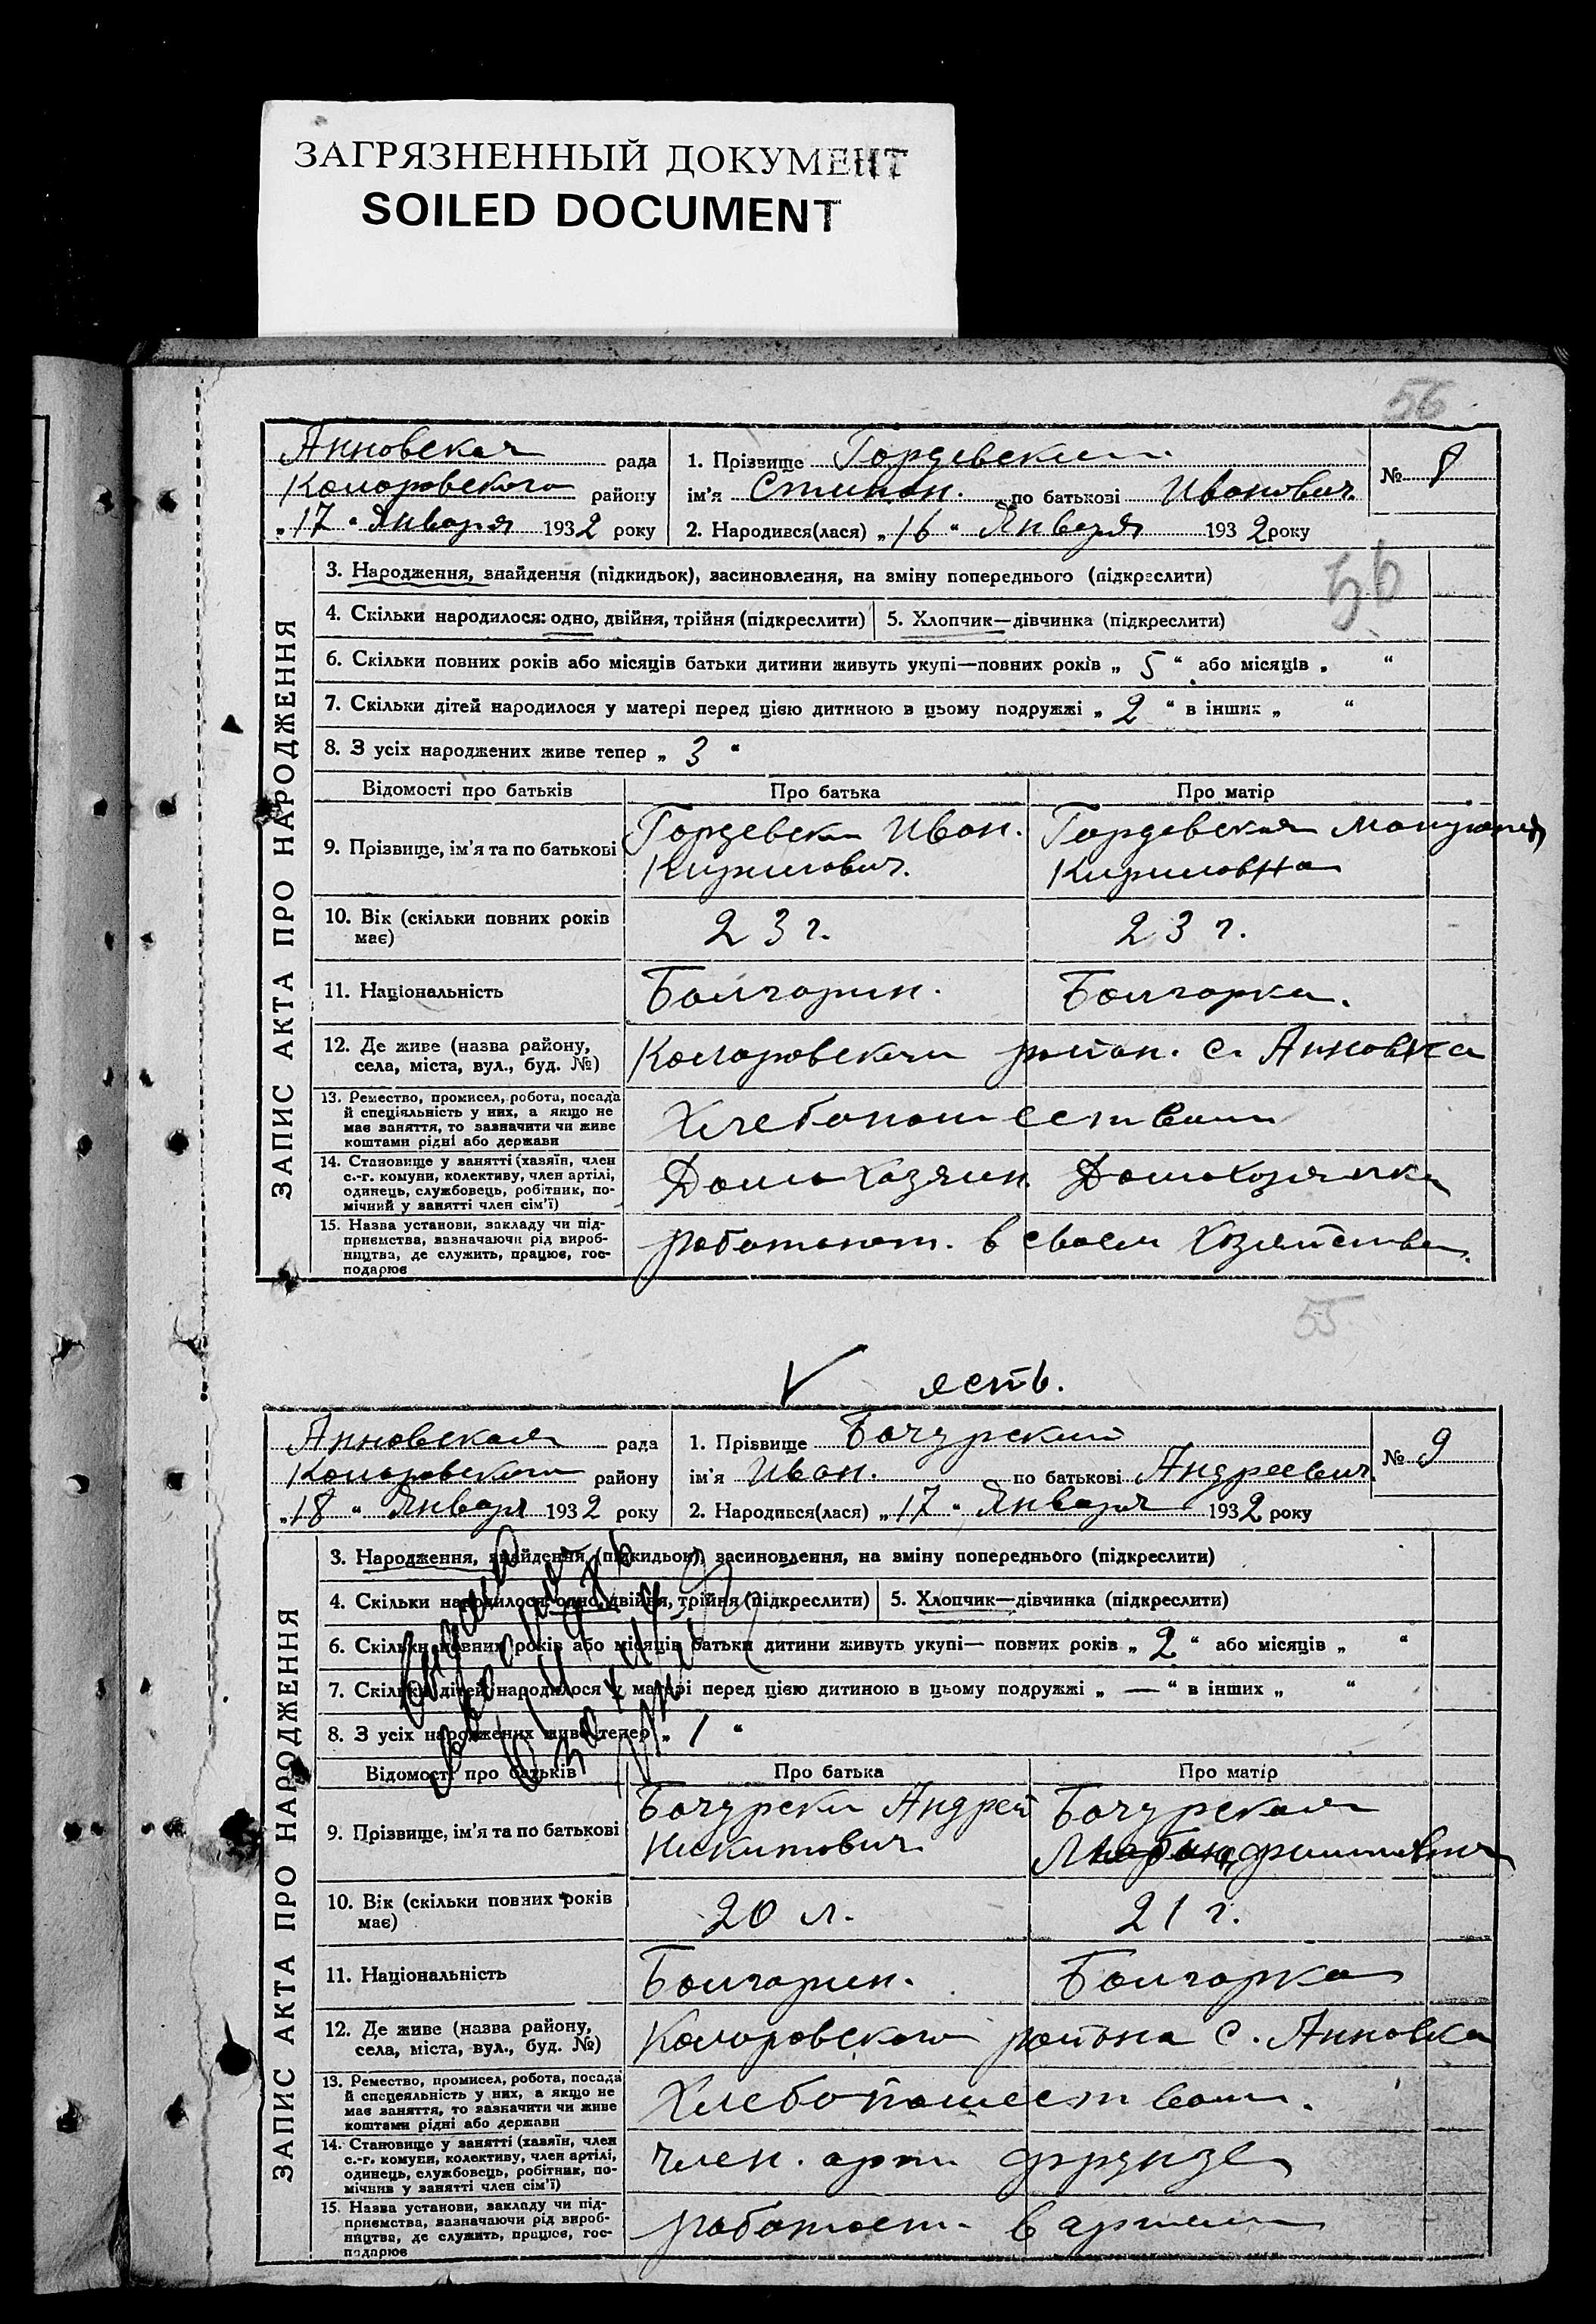 ЗАГРЯЗНЕННЫЙ ДОКУМЕНТ
SOILED DOCUMENT
56
Анновская рада
Коларовского району
„17“ Января 1932 року
1. Прізвище Гордевский
ім'я Степан. по батькові Иванович
2. Народився(лася) „16“ Января 1932 року
№ 8
ЗАПИС АКТА ПРО НАРОДЖЕННЯ
3. Народження, знайдення (підкидьок), засиновлення, на зміну попереднього (підкреслити)
56
4. Скільки народилося: одно, двійня, трійня (підкреслити) 5. Хлопчик—дівчинка (підкреслити)
6. Скільки повних років або місяців батьки дитини живуть укупі—повних років „ 5 “ або місяців „ “
7. Скільки дітей народилося у матері перед цією дитиною в цьому подружжі „ 2 “ в інших „ “
8. З усіх народжених живе тепер „ 3 “
Відомості про батьків Про батька Про матір
9. Прізвище, ім'я та по батькові
Гордевски Иван.
Кирилович.
Гордевская
Кириловна
10. Вік (скільки повних років
має)
23 г. 23 г.
11. Національність Болгарин. Болгарка.
12. Де живе (назва району,
села, міста, вул., буд. №)
Коларовский район. с. Анновка
13. Ремество, промисел, робота, посада
й спеціяльність у них, а якщо не
має заняття, то зазначити чи живе
коштами рідні або держави
Хлебопашеством
14. Становище у занятті (хазяїн, член
с.-г. комуни, колективу, член артілі,
одинець, службовець, робітник, по-
мічний у занятті член сім'ї)
Домохазяин. Домохозяика
15. Назва установи, закладу чи під-
приємства, зазначаючи рід вироб-
ництва, де служить, працює, гос-
подарює
работают. в своем Хозяйстве.
55
V есть.
Анновская рада
Коларовского району
„18“ Января 1932 року
1. Прізвище Бачурский
ім'я Иван. по батькові Андреевич.
2. Народився(лася) „17“ Января 1932 року
№ 9
ЗАПИС АКТА ПРО НАРОДЖЕННЯ
3. Народження, знайдення (підкидьок), засиновлення, на зміну попереднього (підкреслити)
4. Скільки народилося: одно, двійня, трійня (підкреслити) 5. Хлопчик—дівчинка (підкреслити)
6. Скільки повних років або місяців батьки дитини живуть укупі— повних років „ 2 “ або місяців „ “
7. Скільки дітей народилося у матері перед цією дитиною в цьому подружжі „ — “ в інших „ “
8. З усіх народжених живе тепер „ 1 “
Відомості про батьків Про батька Про матір
9. Прізвище, ім'я та по батькові
Бачурски Андрей
Никитович
Бачурская
10. Вік (скільки повних років
має)
20 л. 21 г.
11. Національність Болгарин. Болгарка
12. Де живе (назва району,
села, міста, вул., буд. №)
Коларовского района с. Анновка
13. Ремество, промисел, робота, посада
й спецеяльність у них, а якщо не
має заняття, то зазначити чи живе
коштами рідни або держави
Хлебопашеством.
14. Становище у занятті (хазяїн, член
с.-г. комуни, колективу, член артілі,
одинець, службовець, робітник, по-
мічнив у занятті член сім'ї)
член. арти Фрунзе
15. Назва установи, закладу чи під-
приємства, зазначаючи рід вироб-
ництва, де служить, працює, гос-
подарює
работает. в артели